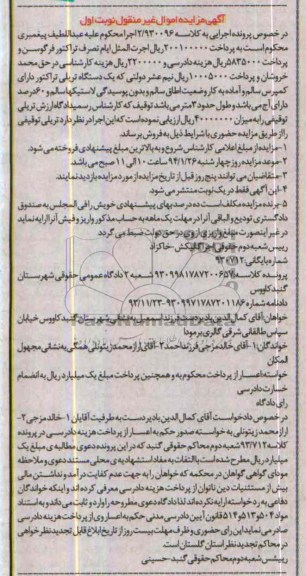 آگهی مزایده اموال غیر منقول نوبت اول
در خصوص پرونده اجرایی به کلاسه ۲/۹۳۰۰۹۶ اجرا محکوم علیه عبداللطیف پیغمبری
محکوم است به پرداخت ۲۰۰۱۰۰۰۰۰ ریال اجرت المثل ایام تصرف تراکتور فرگوسن و
پرداخت ۵۸۳۵۰۰۰ ریال هزینه دادرسی و ۲۲۰۰۰۰۰ ریال هزینه کارشناسی در حق محمد
خروشان و پرداخت ۱۰۰۰۵۰۰۰ ریال نیم عشر دولتی که یک دستگاه تریلی تراکتور دارای
کمپرس سالم و آماده به کار وضعیت اطاق سالم و بدون پوسیدگی لاستیکها سالم و ۶۰ درصد
دارای آج می باشد و طول حدود ۳ متر می باشد توقیف که کارشناس رسمی دادگاه ارزش تریلی
توقیفی را به میزان ۴۰۰۰۰۰۰۰ ریال ارزیابی نموده است که این اجرا در نظر دارد تریلی توقیفی
را از طریق مزایده حضوری با شرایط ذیل به فروش برساند.
۱-مزایده از مبلغ اعلامی کارشناس شروع و به بالاترین مبلغ پیشنهادی فروخته می شود.
۲-موعد مزایده روز چهارشنبه ۹۴/۱/۲۶ ساعت ۱۰ الی ۱۱ صبح می باشد.
۳-متقاضیان می توانند پنج روز قبل از تاریخ مزایده از مورد مزایده بازدید نمایند.
۴-این آگهی فقط در یک نوبت منتشر می شود.
۵-برنده مزایده مکلف است ده درصد بهای پیشنهادی خویش را فی المجلس به صندوق
دادگستری تودیع و الباقی آن را در مهلت یک ماهه به حساب مذکور واریز و فیش آنرا ارایه نماید
در غیر اینصورت مبلغ واریزی از وی در حق دولت ضبط می گردد
رییس شعبه دوم حقوقی اجرا گالیکش-خاکزاد
شماره بایگانی: ۹۳۰۷۱۲
پرونده کلاسه ۹۳۰۹۹۸۱۷۸۷۲۰۰۶۵۷ شعبه ۲ دادگاه عمومی حقوقی شهرستان
گنبدکاووس
دادنامه شماره ۹۳۰۹۹۷۱۷۸۷۲۰۱۱۸۶-۹۳/۱۱/۲۳
خواهان: آقای کمال الدین بادپر فرزند اسمعیل به نشانی شهرستان گنبد کاووس خیابان
سپاس طالقانی شرقی گالری برمودا
خواندگان:۱-آقای خالد مزجی فرزند احمد ۲-آقای آراز محمد زیتونلی همگی به نشانی مجهول
المکان
خواسته: اعسار از پرداخت محکوم به و همچنین پرداخت مبلغ یک میلیارد ریال به انضمام
خسارت دادرسی
رای دادگاه
در خصوص دادخواست آقای کمال الدین بادپر دست به طرفیت آقایان ۱-خالد مزجی ۲-
آراز محمد زیتونلی به خواسته صدور حکم به اعسار از پرداخت هزینه دادرسی در پرونده
کلاسه ۹۳/۷۱۲ شعبه دوم محاکم حقوقی گنبد که در این پرونده دعوی مطالبه ی مبلغ یک
میلیارد ریال مطرح شده است با التفات به مفاد استشهادیه ی محلی مستند دعوی و ملاحظه
مودای گواهی گواهان در محکمه که خواهان را به جهت عدم کفایت درآمد و نداشتن مالی
بیش از مستثنیات دین ناتوان از پرداخت هزینه دادرسی معرفی کرده اند و اینکه خواندگان
دفاعی به رد خواسته ارایه نکرده اند لذا دادگاه دعوی مطروحه را وارد و ثابت می داند و به استناد
مواد ۵۰۴ و ۵۱۳ و ۵۱۴ قانون آیین دادرسی مدنی حکم به اعسار وی از پرداخت هزینه دادرسی
صادر می نماید این رای حضوری و ظرف مهلت بیست روز از تاریخ ابلاغ قابل تجدیدنظرخواهی
در محاکم تجدیدنظر استان گلستان است.
رییس شعبه دوم محاکم حقوقی گنبد-حسینی